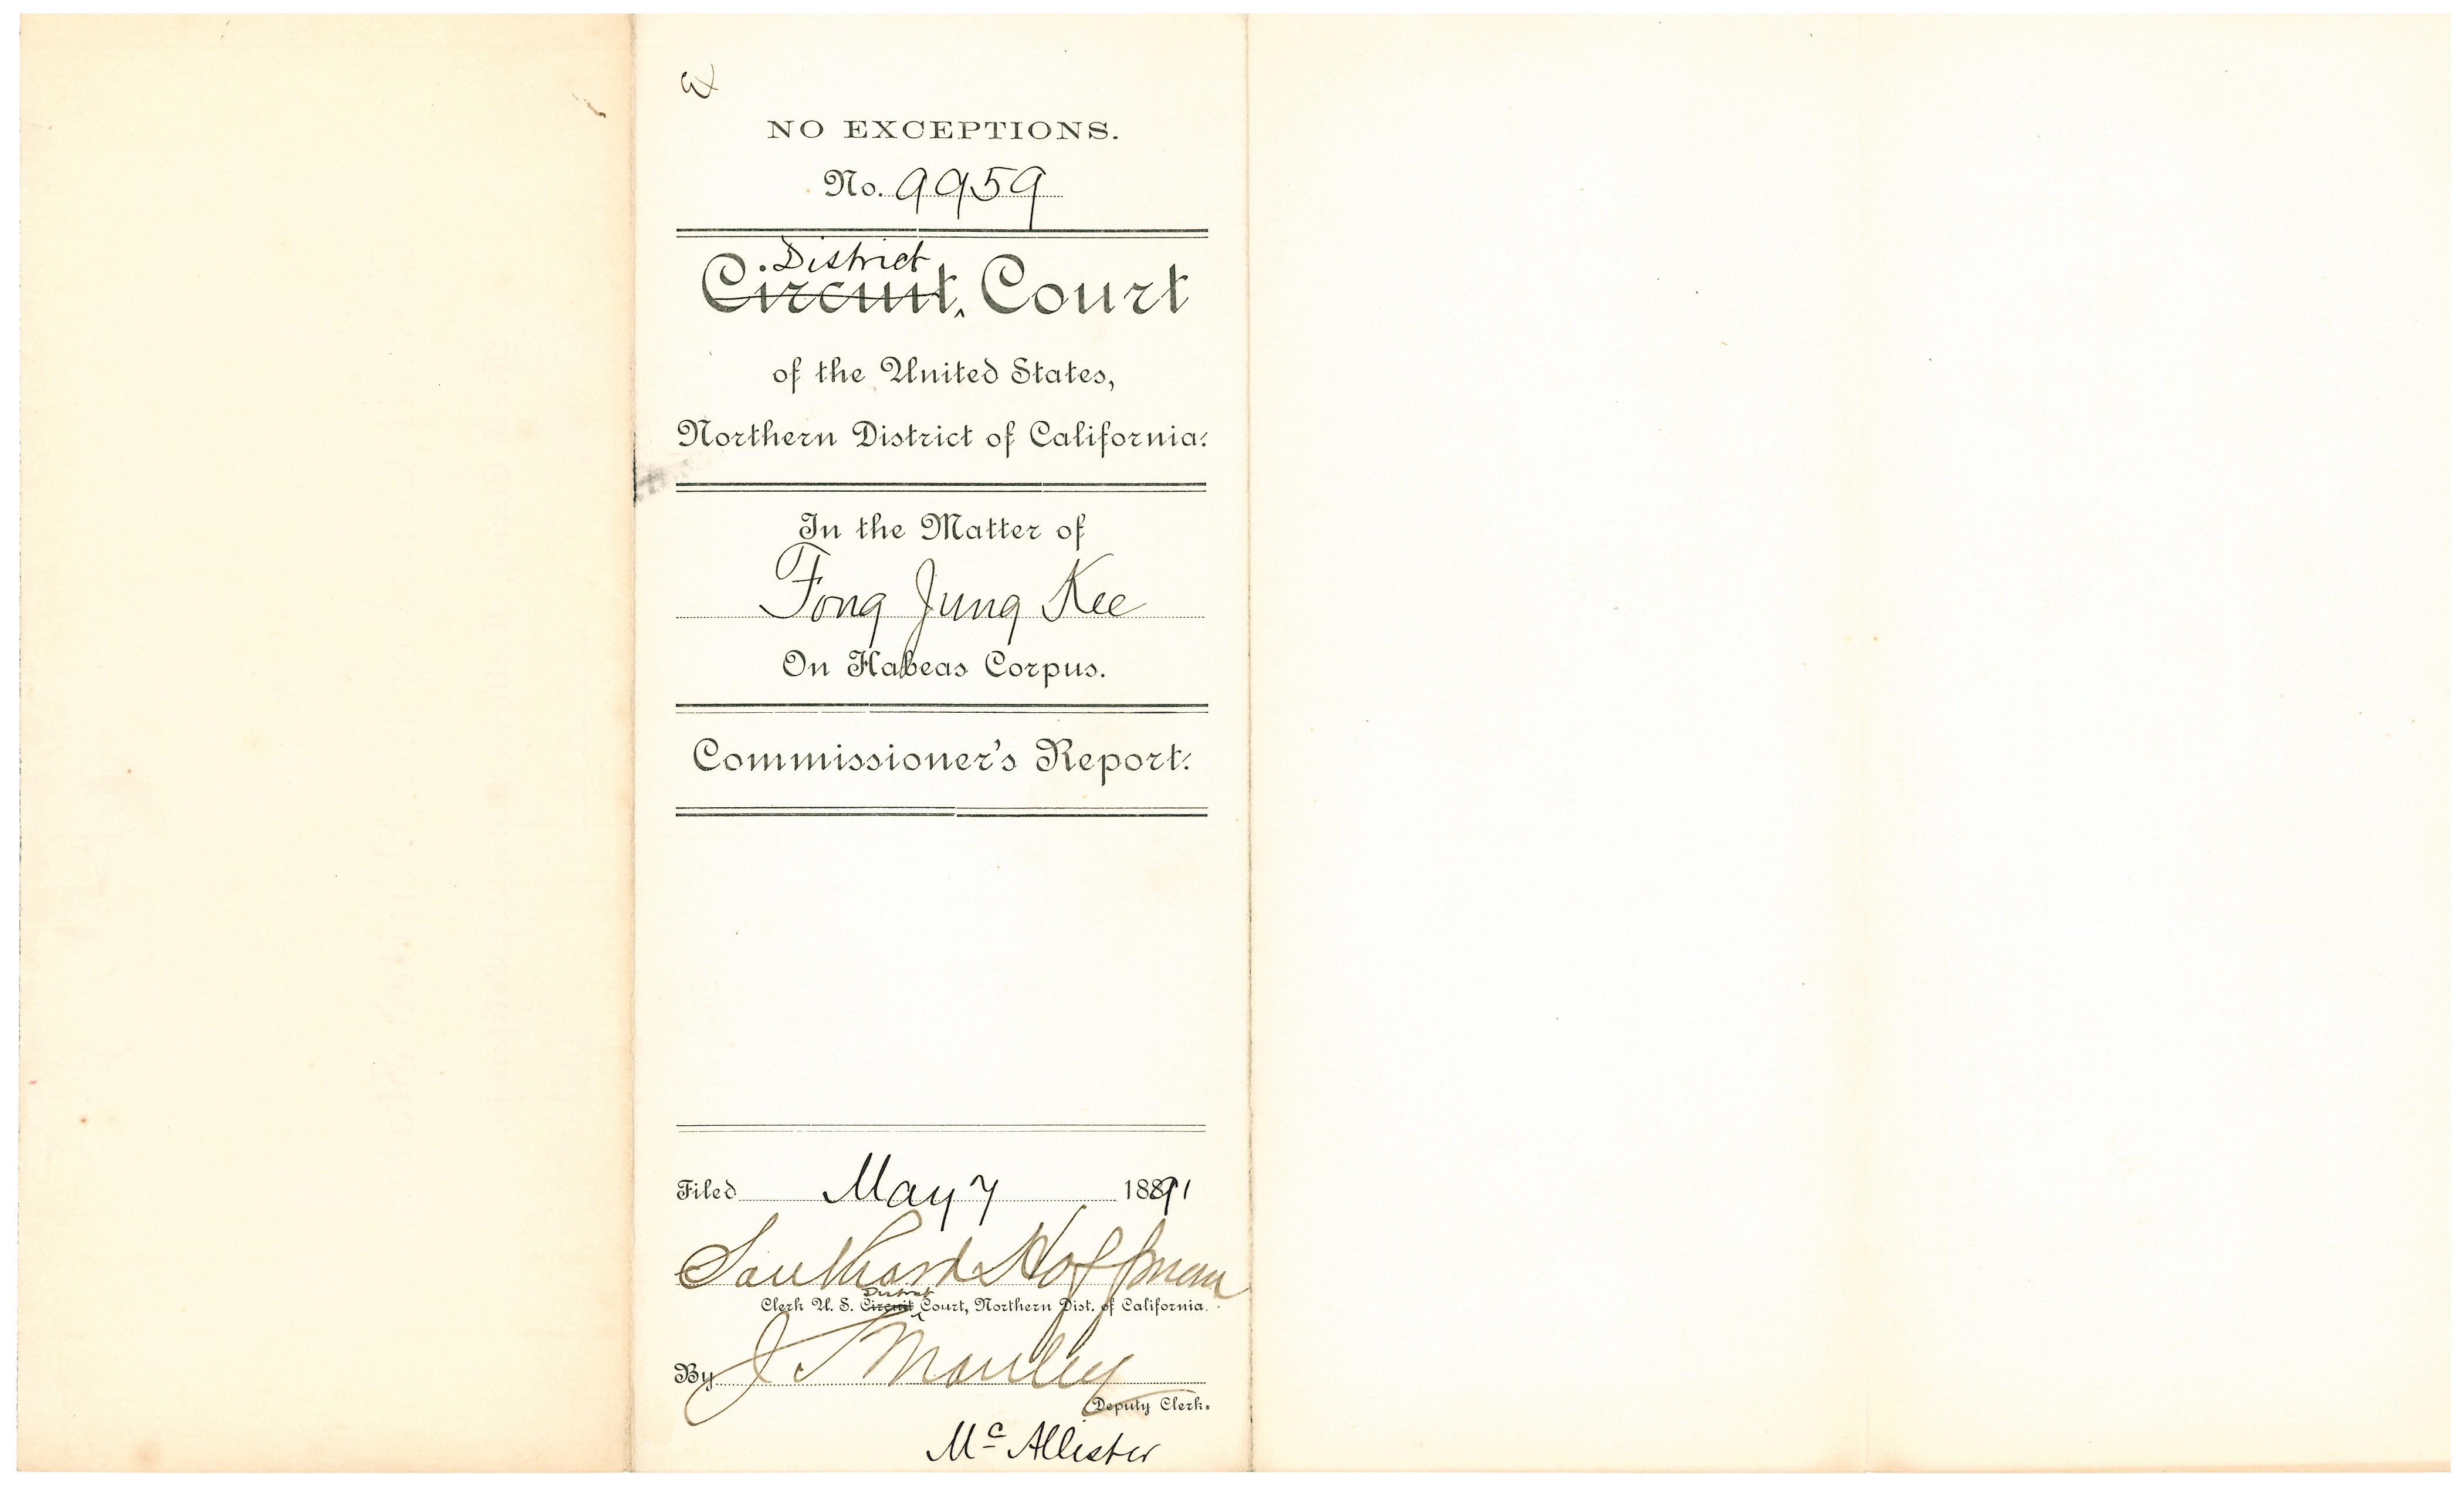 NO EXCEPTIONS.
No. 9959
District
Circuit ^ Court
of the United States,
Northern District of California.
In the Matter of
Fong Jung Kee
On Habeas Corpus.
Commissioner's Report.
Filed May 7 1891
Southard Hoffman
District
Clerk U. S. Circuit ^ Court, Northern Dist. of California.
By J. S. Manley
Deputy Clerk.
Mc Allister